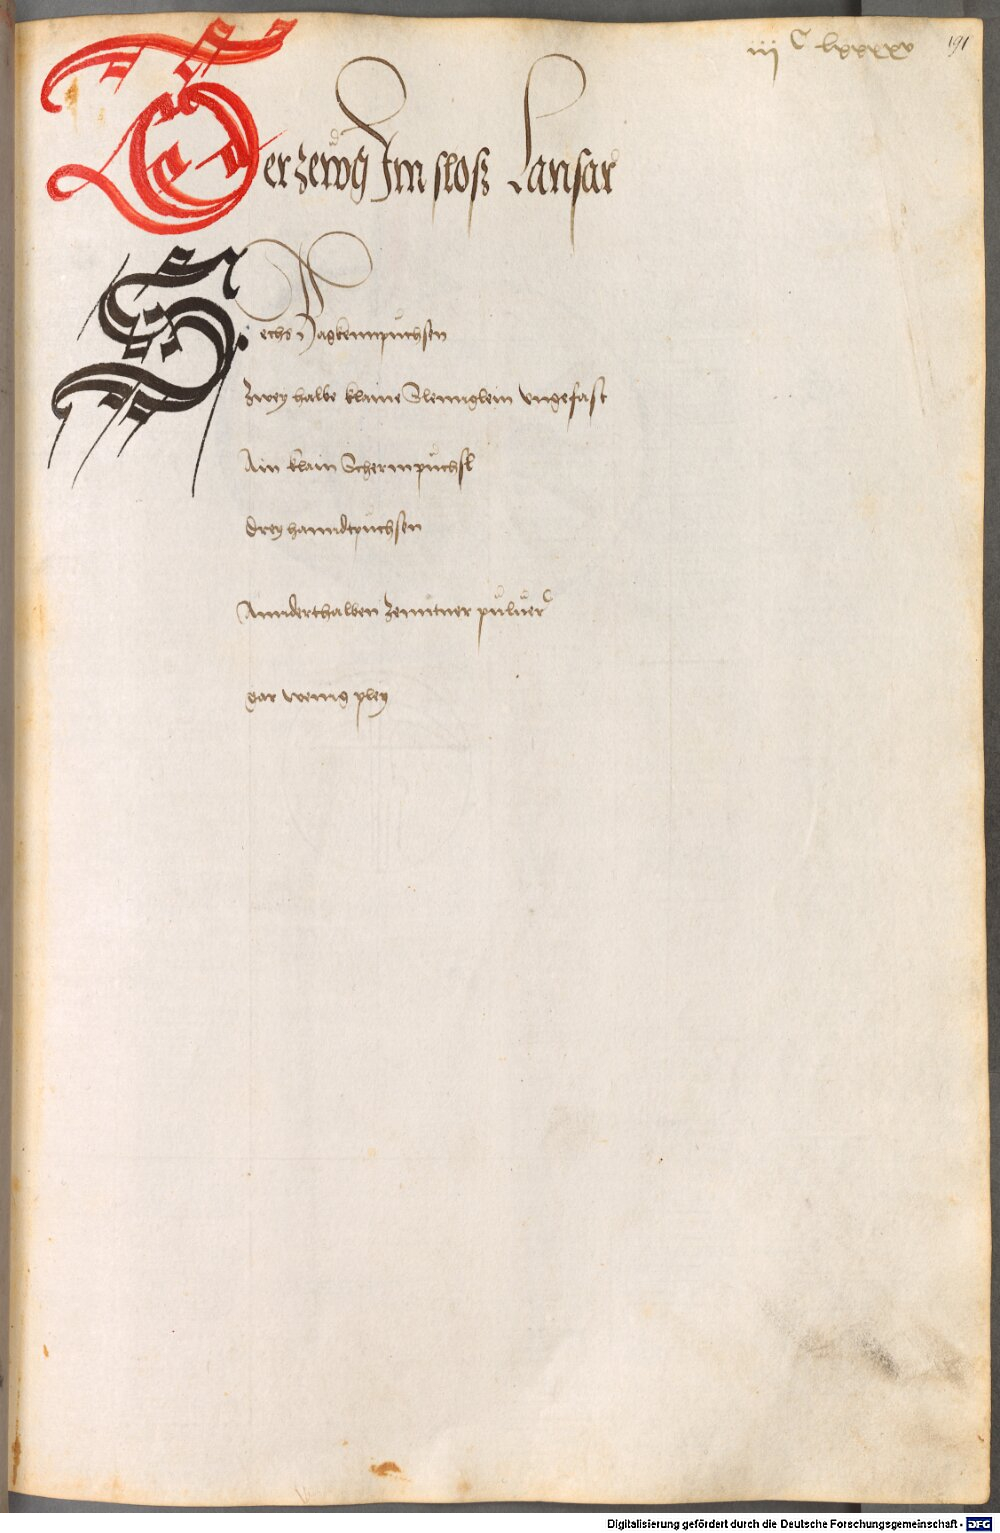 iii C lxxxxv 191
Der zewg Im sloß Lansar
Sechs Hagkennpuchsen
Zwey halbe klaine Slennglein vngefast
Ain klain Schermpuchsl
Drey hanndtpuchsen
Annderthalben Zenntner puluer
gar wenig pley
Digitalisierung gefördert durch die Deutsche Forschungsgemeinschaft - DFG